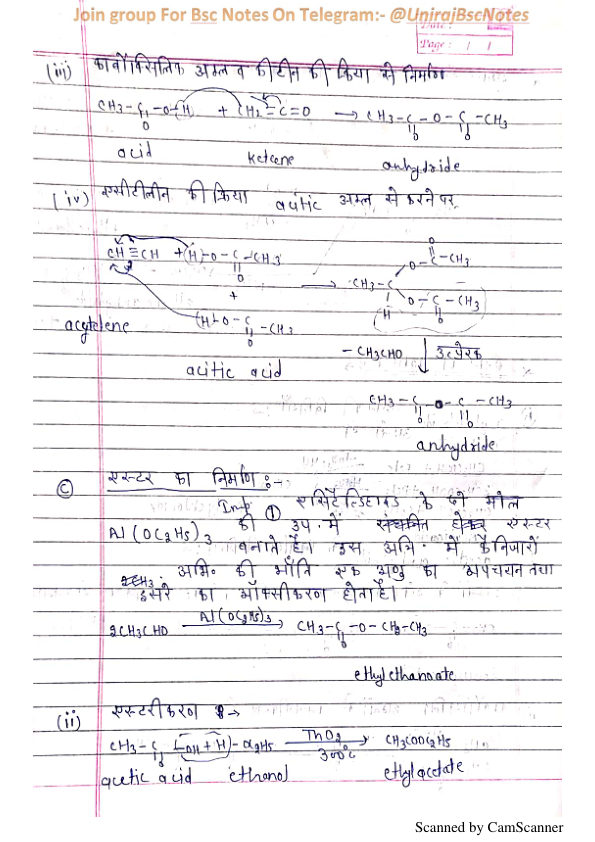 Join group For Bsc Notes On Telegram:- @UnirajBscNotes
Page: / /
(iii) कार्बोक्सिलिक अम्ल व कीटीन की क्रिया से निर्माण
CH3-C-O-(H) + CH2=C=O → CH3-C-O-C-CH3
O O O
acid ketene anhydride
(iv) एसीटीलीन की क्रिया acitic अम्ल से करने पर
O
CH≡CH +(H)-O-C-CH3 O-C-CH3
O
+ → CH3-C
O-C-CH3
H O
acytelene (H)-O-C-CH3
O
-CH3CHO ↓ उत्प्रेरक
acitic acid
CH3-C-O-C-CH3
O O
anhydride
(C) एस्टर का निर्माण :-
Imp (1) एसिटैल्डिहाइड के दो मोल
Al(OC2H5)3 की उप. में संघनित होकर एस्टर
बनाते है। इस अभि. में कैनिजारो
अभि. की भाँति एक अणु का अपचयन तथा
दूसरे का ऑक्सीकरण होता है।
2CH3CHO Al(OC2H5)3 → CH3-C-O-CH2-CH3
O
ethylethanoate
(ii) एस्टरीकरण :→
CH3-C-[OH + H]-C2H5 ThO2 → CH3COOC2H5
O 300°C
acetic acid ethanol ethylacetate
Scanned by CamScanner